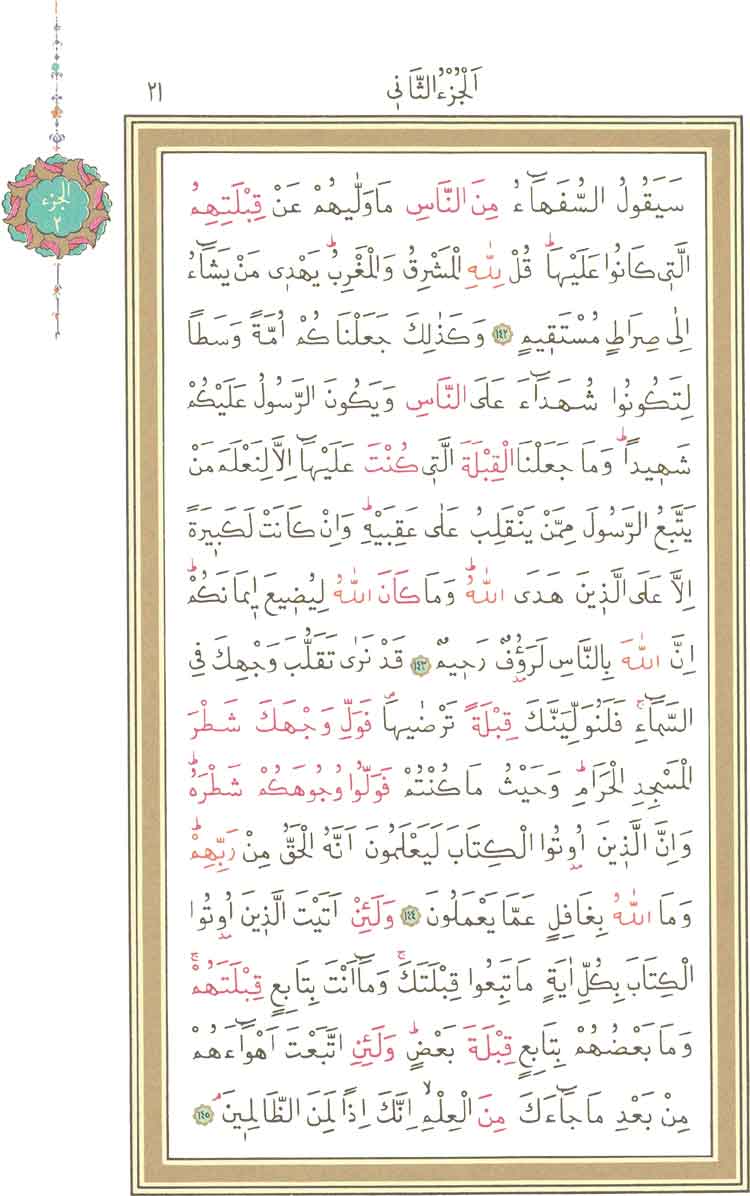 اَلْجُزْءُ الثَّانٖي
٢١
الجزء
٢
سَيَقُولُ السُّفَهَٓاءُ مِنَ النَّاسِ مَا وَلّٰيهُمْ عَنْ قِبْلَتِهِمُ
الَّتٖي كَانُوا عَلَيْهَاۜ قُلْ لِلّٰهِ الْمَشْرِقُ وَالْمَغْرِبُۜ يَهْدٖي مَنْ يَشَٓاءُ
اِلٰى صِرَاطٍ مُسْتَقٖيمٍ ١٤٢ وَكَذٰلِكَ جَعَلْنَاكُمْ اُمَّةً وَسَطًا
لِتَكُونُوا شُهَدَٓاءَ عَلَى النَّاسِ وَيَكُونَ الرَّسُولُ عَلَيْكُمْ
شَهٖيدًاۜ وَمَا جَعَلْنَا الْقِبْلَةَ الَّتٖي كُنْتَ عَلَيْهَٓا اِلَّا لِنَعْلَمَ مَنْ
يَتَّبِعُ الرَّسُولَ مِمَّنْ يَنْقَلِبُ عَلٰى عَقِبَيْهِۜ وَاِنْ كَانَتْ لَكَبٖيرَةً
اِلَّا عَلَى الَّذٖينَ هَدَى اللّٰهُۜ وَمَا كَانَ اللّٰهُ لِيُضٖيعَ اٖيمَانَكُمْۜ
اِنَّ اللّٰهَ بِالنَّاسِ لَرَؤُ۫فٌ رَحٖيمٌ ١٤٣ قَدْ نَرٰى تَقَلُّبَ وَجْهِكَ فِي
السَّمَٓاءِۚ فَلَنُوَلِّيَنَّكَ قِبْلَةً تَرْضٰيهَاۖ فَوَلِّ وَجْهَكَ شَطْرَ
الْمَسْجِدِ الْحَرَامِۜ وَحَيْثُ مَا كُنْتُمْ فَوَلُّوا وُجُوهَكُمْ شَطْرَهُۜ
وَاِنَّ الَّذٖينَ اُو۫تُوا الْكِتَابَ لَيَعْلَمُونَ اَنَّهُ الْحَقُّ مِنْ رَبِّهِمْۜ
وَمَا اللّٰهُ بِغَافِلٍ عَمَّا يَعْمَلُونَ ١٤٤ وَلَئِنْ اَتَيْتَ الَّذٖينَ اُو۫تُوا
الْكِتَابَ بِكُلِّ اٰيَةٍ مَا تَبِعُوا قِبْلَتَكَۚ وَمَٓا اَنْتَ بِتَابِعٍ قِبْلَتَهُمْۚ
وَمَا بَعْضُهُمْ بِتَابِعٍ قِبْلَةَ بَعْضٍۜ وَلَئِنِ اتَّبَعْتَ اَهْوَٓاءَهُمْ
مِنْ بَعْدِ مَا جَٓاءَكَ مِنَ الْعِلْمِۙ اِنَّكَ اِذًا لَمِنَ الظَّالِمٖينَۢ ١٤٥